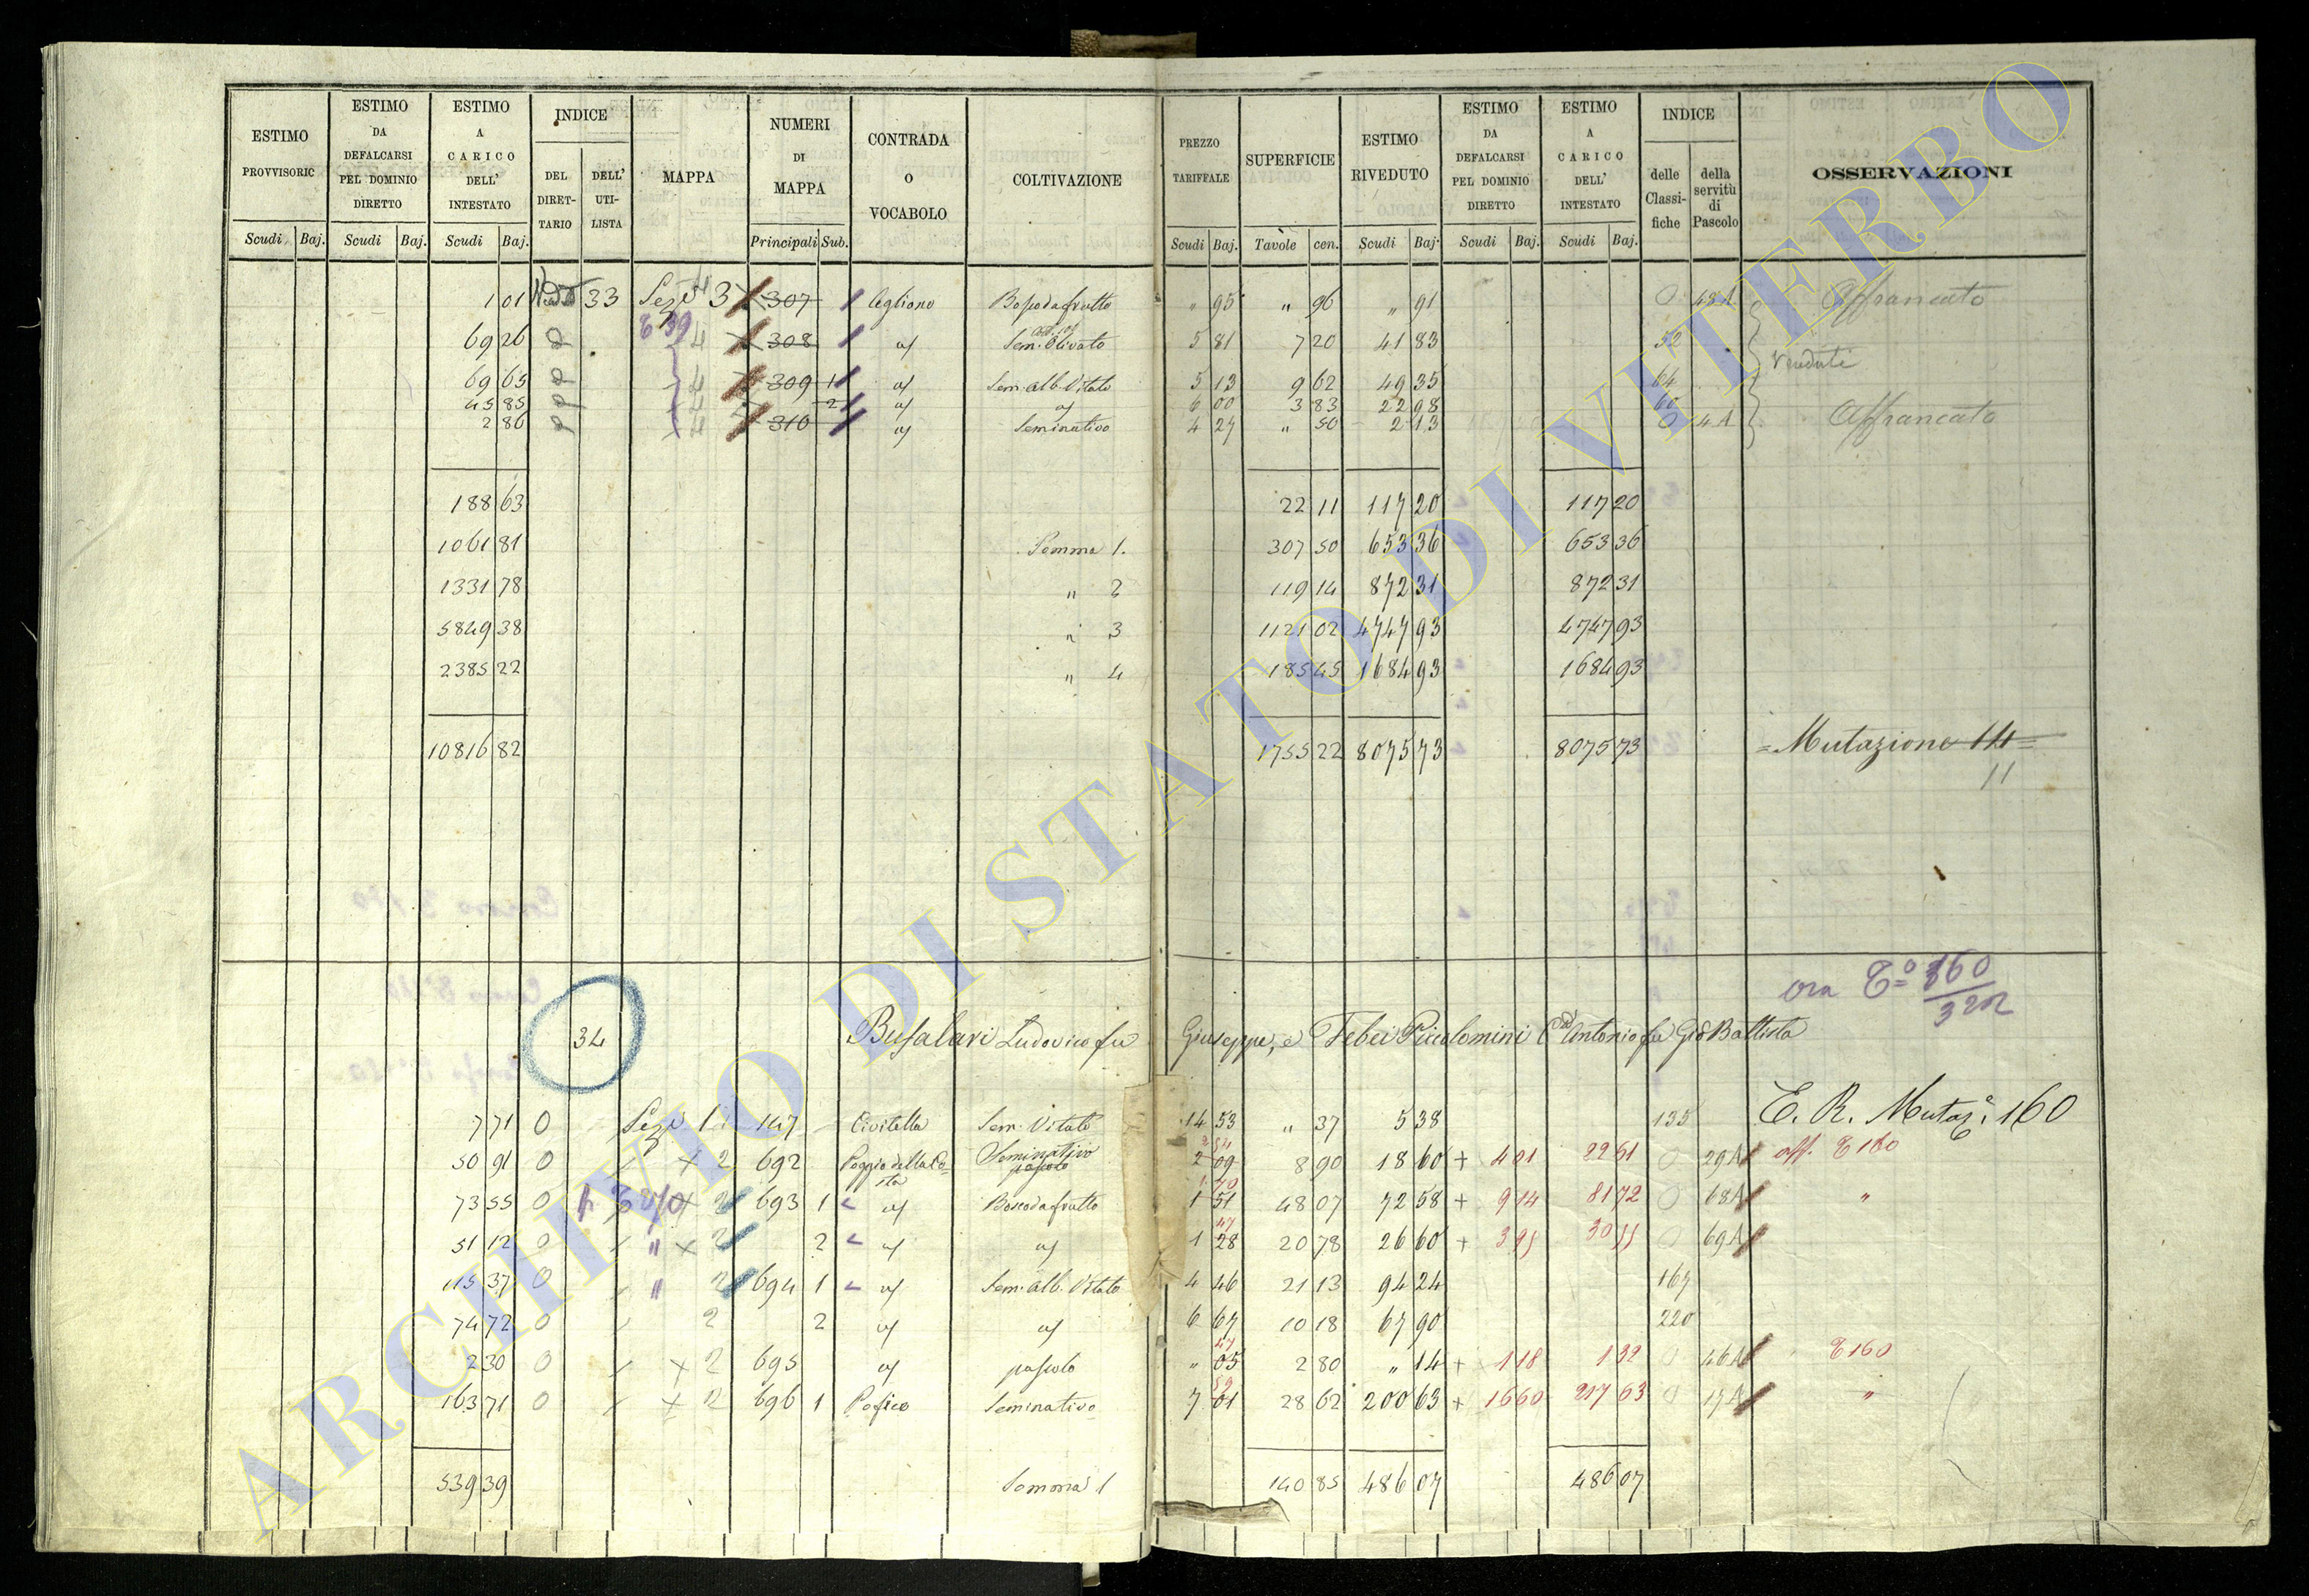 ESTIMO PROVVISORIC Scudi Baj.
ESTIMO DA DEFALCARSI PEL DOMINIO DIRETTO Scudi Baj.
ESTIMO A CARICO DELL' INTESTATO Scudi Baj.
INDICE DEL DIRET- TARIO DELL' UTI- LISTA
MAPPA
NUMERI DI MAPPA Principali Sub.
CONTRADA O VOCABOLO
COLTIVAZIONE
PREZZO TARIFFALE Scudi Baj.
SUPERFICIE Tavole cen.
ESTIMO RIVEDUTO Scudi Baj.
ESTIMO DA DEFALCARSI PEL DOMINIO DIRETTO Scudi Baj.
ESTIMO A CARICO DELL' INTESTATO Scudi Baj.
INDICE delle Classi- fiche della servitù di Pascolo
OSSERVAZIONI
1 01 33 Sez.e 3 307 Cegliono Boscodafrutto " 95 " 96 " 91 0 48A Affrancato
69 26 4 308 Sem. Olivato 5 81 7 20 41 83 52
69 65 4 309 1 Sem. Alb. Vitato 5 13 9 62 49 35 64 Venduti
45 85 4 2 6 00 3 83 22 98 60
2 86 4 310 Seminativo 4 27 " 50 2 13 0 4A Affrancato
188 63 22 11 117 20 117 20
1061 81 Somma 1. 307 50 653 36 653 36
1331 78 " 2 119 14 872 31 872 31
5849 38 " 3 1121 02 4747 93 4747 93
2385 22 " 4 185 45 1684 93 1684 93
10816 82 1755 22 8075 73 8075 73 = Mutazione 14 =
11
ora T.o 160
322
34 Bufalari Ludovico fu Giuseppe, e Febei Piccolomini Antonio fu Gio Battista
7 71 0 Sez.e 1 147 Civitella Sem. Vitato 14 53 " 37 5 38 135 E. R. Mutaz.e 160
50 91 0 2 692 Poggio della Co- sta Seminativo pascolo 2 09 8 90 18 60 + 4 01 22 61 0 29A aff. T 160
73 55 0 2 693 1 Boscodafrutto 1 51 48 07 72 58 + 9 14 81 72 0 68A "
51 12 0 " 2 2 1 28 20 78 26 60 + 3 95 30 55 0 69A
115 37 0 " 2 694 1 Sem. Alb. Vitato 4 46 21 13 94 24 167
74 72 0 2 2 6 67 10 18 67 90 220
2 30 0 2 695 pascolo " 05 2 80 " 14 + 1 18 1 32 0 46A T 160
163 71 0 2 696 1 Seminativo 7 01 28 62 200 63 + 16 60 217 63 0 17A "
539 39 Somma 1 140 85 486 07 486 07
ARCHIVIO DI STATO DI VITERBO